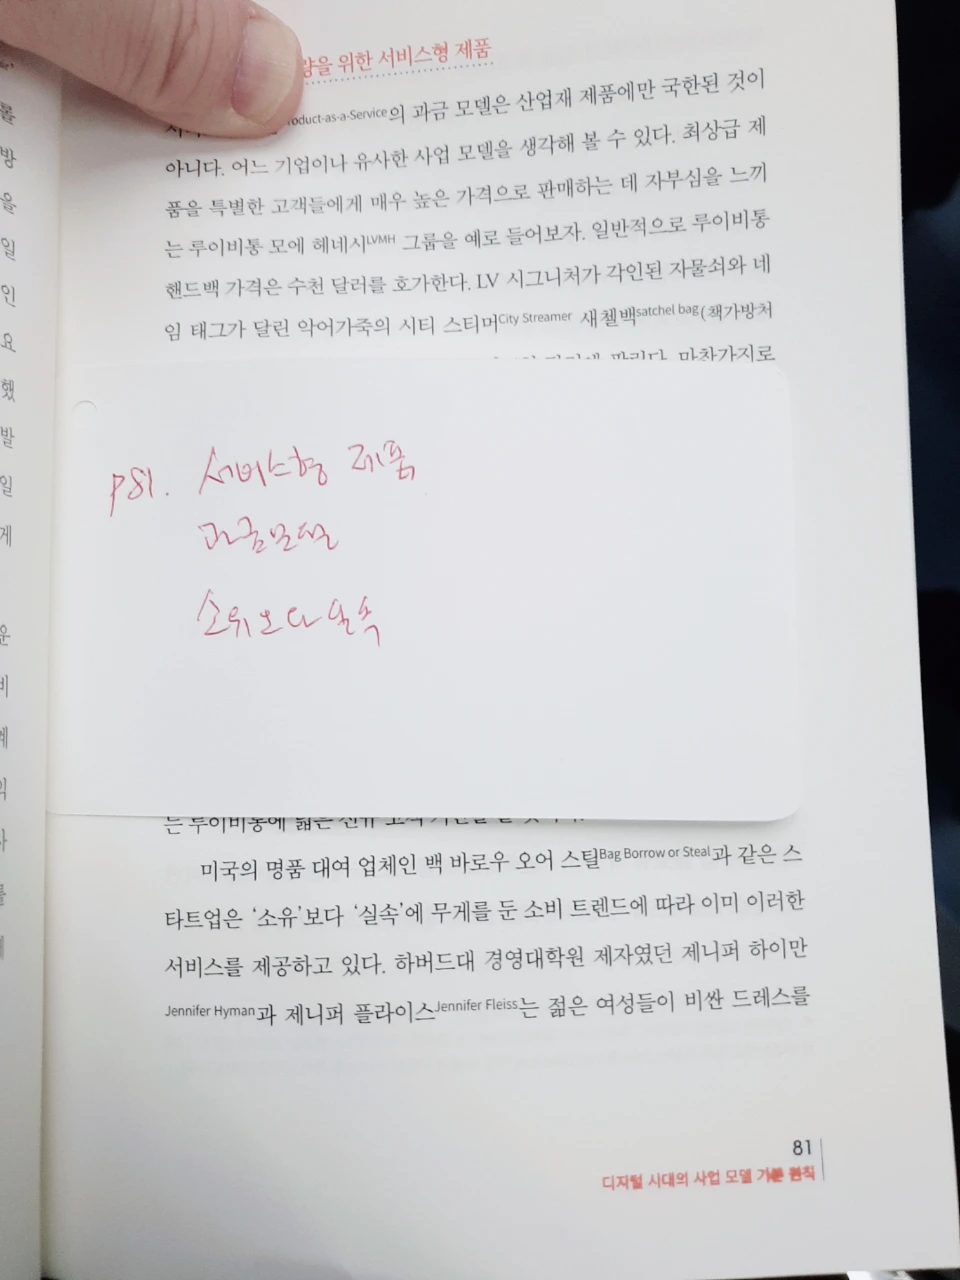 위한 서비스형 제품
의 과금 모델은 산업재 제품에만 국한된 것이
아니다. 어느 기업이나 유사한 사업 모델을 생각해 볼 수 있다. 최상급 제
품을 특별한 고객들에게 매우 높은 가격으로 판매하는 데 자부심을 느끼
는 루이비통 모에 헤네시LVMH 그룹을 예로 들어보자. 일반적으로 루이비통
핸드백 가격은 수천 달러를 호가한다. LV 시그니처가 각인된 자물쇠와 네
임 태그가 달린 악어가죽의 시티 스티머City Streamer 새첼백satchel bag(책가방처
마찬가지로
P81. 서비스형 제품
과금모델
소유보다 실속
는 루이비통에
미국의 명품 대여 업체인 백 바로우 오어 스틸Bag Borrow or Steal과 같은 스
타트업은 ‘소유’보다 ‘실속’에 무게를 둔 소비 트렌드에 따라 이미 이러한
서비스를 제공하고 있다. 하버드대 경영대학원 제자였던 제니퍼 하이만
Jennifer Hyman과 제니퍼 플라이스Jennifer Fleiss는 젊은 여성들이 비싼 드레스를
81
디지털 시대의 사업 모델 기본 원칙